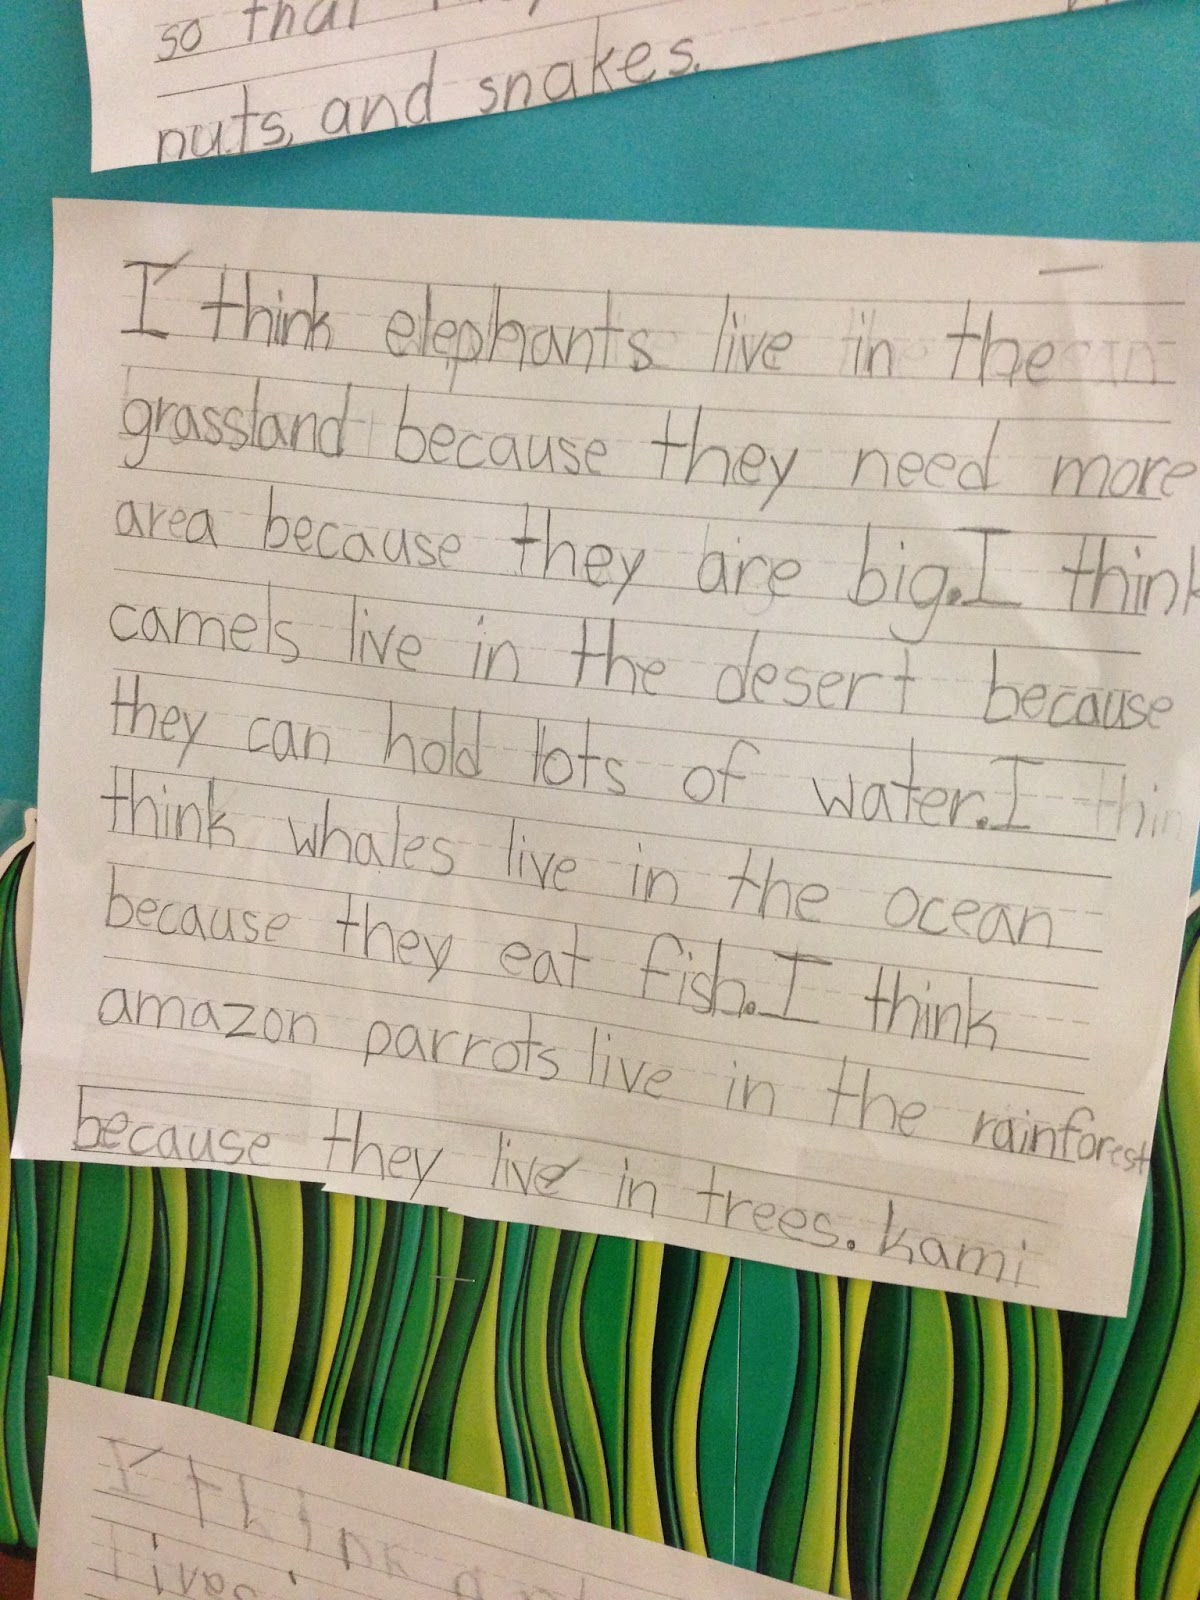 so that
nuts, and snakes.
I think elephants live in the
grassland because they need more
area because they are big. I think
camels live in the desert because
they can hold lots of water. I thin
think whales live in the ocean
because they eat fish. I think
amazon parrots live in the rainforest
because they live in trees. kami
I